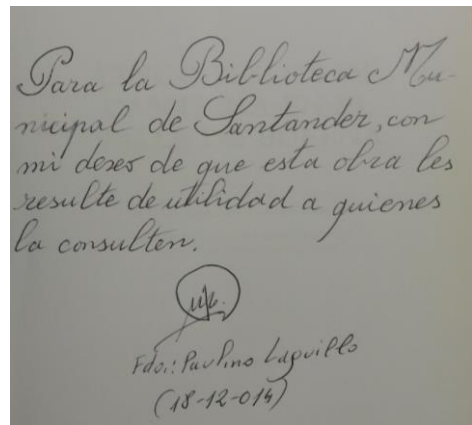 Para la Biblioteca Mu-
nicipal de Santander, con
mi deseo de que esta obra les
resulte de utilidad a quienes
la consulten.
Fdo.: Paulino Laguillo
(18-12-014)